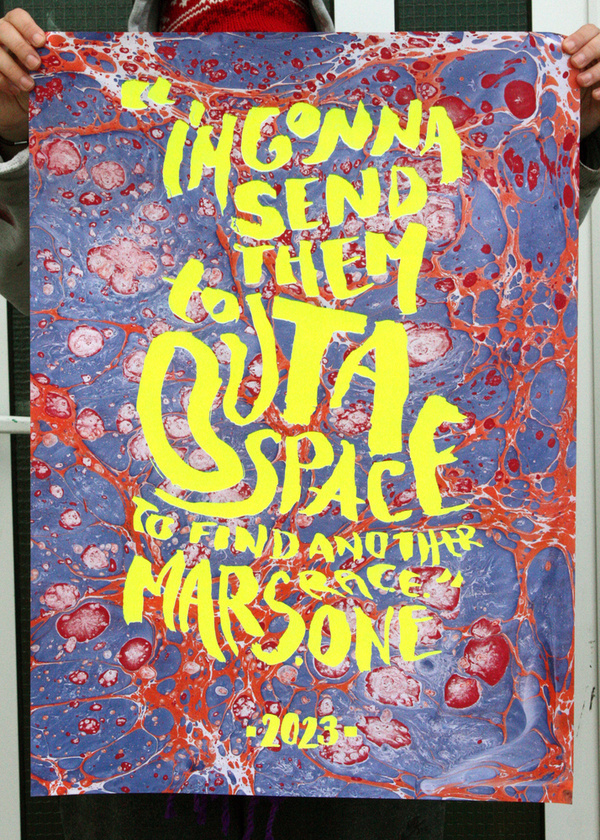 "I'M GONNA
SEND
THEM
to
OUTA
SPACE
TO FIND ANOTHER
RACE."
MARS.ONE
·2023·